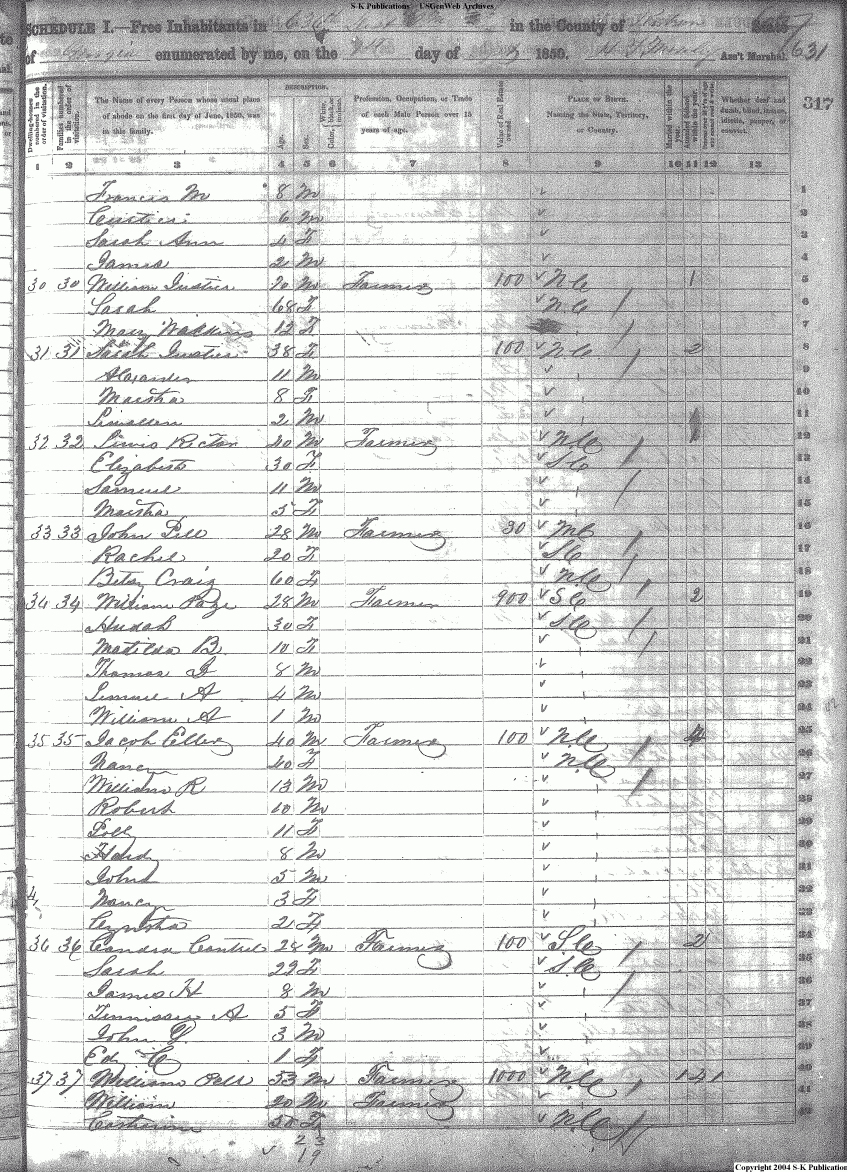 S-K Publications - USGenWeb Archives
SCHEDULE I.—Free Inhabitants in 636th in the County of State
of Georgia enumerated by me, on the day of 1850. Ass't Marshal. 631
317
Dwelling-houses numbered in the order of visitation.
Families numbered in the order of visitation.
The Name of every Person whose usual place of abode on the first day of June, 1850, was in this family.
DESCRIPTION.
Age.
Sex.
Color, White, black, or mulatto.
Profession, Occupation, or Trade of each Male Person over 15 years of age.
Value of Real Estate owned.
PLACE OF BIRTH. Naming the State, Territory, or Country.
Married within the year.
Whether deaf and dumb, blind, insane, idiotic, pauper, or convict.
1 2 3 4 5 6 7 8 9 10 11 12 13
Francis M 8 M 1
6 M 2
Sarah Ann 4 F 3
James 2 M 4
30 30 William Justice 70 M Farmer 100 N.C 1 5
Sarah 68 F N.C 6
Mary Watkins 12 F 7
31 31 Sarah Justice 38 F 100 N.C 2 8
Alexander 11 M 9
Martha 8 F 10
2 M 11
32 32 Lewis Rector 40 M Farmer N.C 12
Elizabeth 30 F S.C 13
Samuel 11 M 14
Martha 5 F 15
33 33 John Pell 28 M Farmer 30 N.C 16
Rachel 20 F S.C 17
Betsy Craig 60 F N.C 18
34 34 William Page 28 M Farmer 900 S.C 2 19
Huldah 30 F S.C 20
Matilda B. 10 F 21
Thomas J 8 M 22
Lemuel A 4 M 23
William A 1 M 24
35 35 Jacob Eller 40 M Farmer 100 N.C 4 25
Nancy 40 F N.C 26
William R 13 M 27
Robert 10 M 28
Polly 11 F 29
Hardy 8 M 30
John 5 M 31
Nancy 3 F 32
Cyntha 2 F 33
36 36 Candra Cantrel 28 M Farmer 100 S.C 2 34
Sarah 22 F S.C 35
James H 8 M 36
Tennessee A 5 F 37
John Y. 3 M 38
Ed. C 1 F 39
37 37 William Pell 53 M Farmer 1000 N.C 1 4 1 40
William 20 M Farmer 41
Catherine 50 F N.C 42
23
19
Copyright 2004 S-K Publications